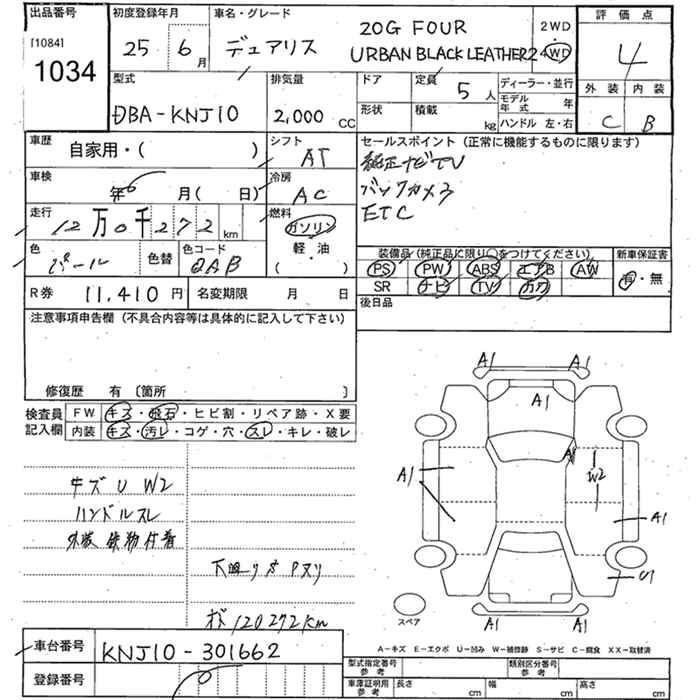 出品番号 初度登録年月 車名・グレード 評価点
[1084]
1034
25年6月 デュアリス 20G FOUR 2WD
URBAN BLACK LEATHER2 4WD
4
型式 排気量 ドア 定員 5人 ディーラー・並行 外装 内装
DBA-KNJ10 2,000 CC 形状 積載 kg モデル年式 年 C B
ハンドル 左・右
車歴 自家用・( ) シフト AT セールスポイント(正常に機能するものに限ります)
純正ナビTV
車検 年6月( 日) 冷房 AC バックカメラ
走行 12万0千272km 燃料 ガソリン ETC
軽・油
( )
色 パール 色替 色コード QAB
装備品(純正品に限り〇をつけてください) 新車保証書
PS PW ABS エアB AW 有・無
SR ナビ TV カワ
R券 11,410円 名変期限 月 日 後日品
注意事項申告欄(不具合内容等は具体的に記入して下さい)
修復歴 有〔箇所 〕
検査員記入欄 FW キズ・飛石・ヒビ割・リペア跡・X要
内装 キズ・汚レ・コゲ・穴・スレ・キレ・破レ
キズU W2
ハンドルスレ
外装 鉄粉付着
下廻りサビ
120272km
A1 A1
A1
A1
A1 W2
A1
U1
A1 A1
スペア
A-キズ E-エクボ U-凹み W-補修跡 S-サビ C-腐食 XX-取替済
車台番号 KNJ10-301662
型式指定番号参考 類別区分番号参考
登録番号 0
車庫証明用参考 長さ cm 幅 cm 高さ cm